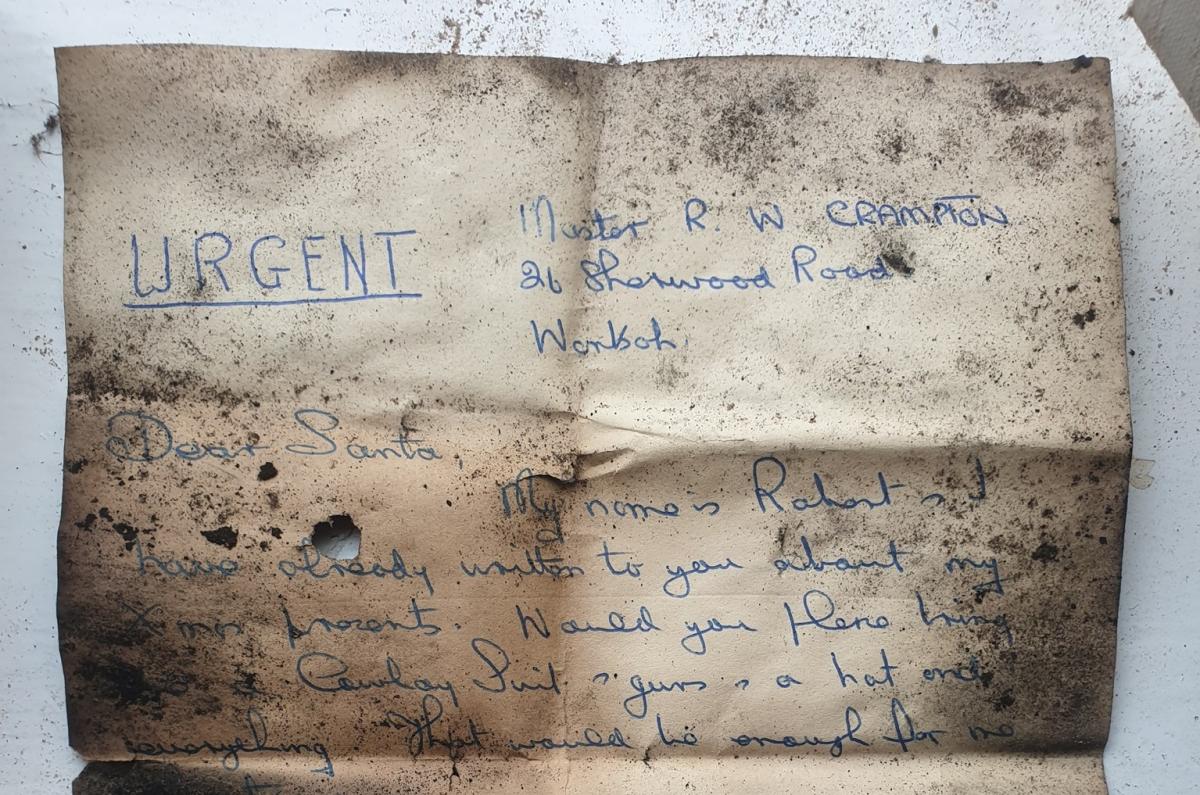 URGENT
Master R. W CRAMPTON
26 Sherwood Road
Worksop.
Dear Santa,
My name is Robert & I
have already written to you about my
Xmas presents. Would you please bring
me a Cowboy Suit & guns & a hat and
everything. That would be enough for me